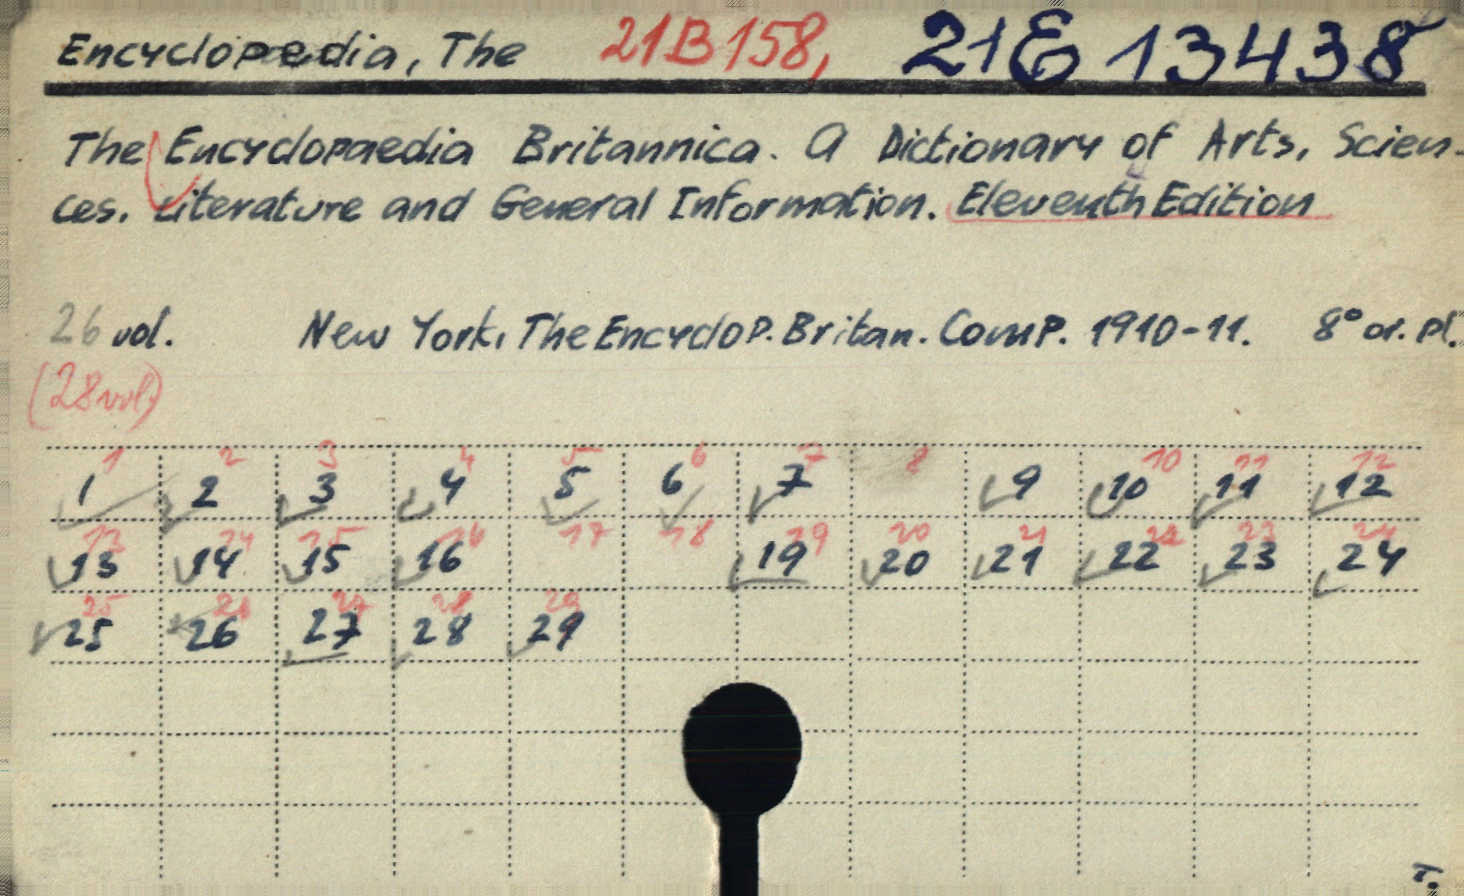 Encyclopaedia, The 21B158, 21E 13438
The Encyclopaedia Britannica. A Dictionary of Arts, Scien-
ces. Literature and General Information. Eleventh Edition
26 vol. New York, The Encyclop. Britan. Comp. 1910-11. 8° or. pl.
(28 vol)
1 2 3 4 5 6 7 8 10 11 12
1 2 3 4 5 6 7 9 10 11 12
13 14 15 16 17 18 19 20 21 22 23 24
13 14 15 16 19 20 21 22 23 24
25 26 27 28 29
25 26 27 28 29
T.